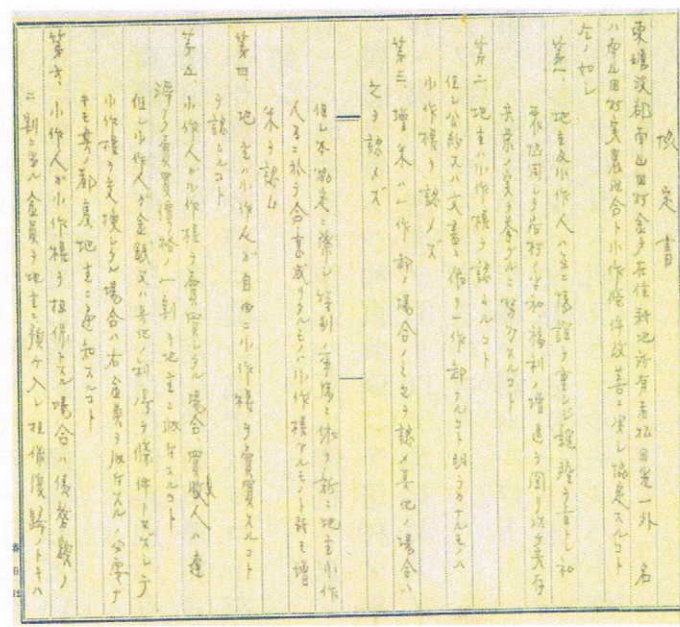 協定書
東礪波郡南山田村金戸在住新地所有者松田憲一外 名
ハ南山田村実農組合ト小作條件改善ニ関シ協定スルコト
左ノ如し
第一、地主及小作人ハ互ニ情誼ヲ重ンジ謙譲ヲ旨トし和
衷協同シテ居村ノ平和福利ノ増進ヲ図リ以テ共存
共栄ノ実ヲ挙グルニ努力スルコト
第二 地主ハ小作権ヲ認ムルコト
但し公約又ハ文書ニ依リ一作卸ナルコト明ラカナルモノハ
小作権ヲ認メズ
第三 増米ハ一作卸ノ場合ノミ之ヲ認メ其他ノ場合ハ
之ヲ認メズ
但し本協定ニ際し特別ノ事情ニ依リ新ニ地主小作
人間ニ於テ合意成リタルモノハ小作権アルモノト雖モ増
米ヲ認ム
第四、地主ハ小作人ガ自由ニ小作権ヲ売買スルコト
ヲ認ムルコト
第五 小作人が小作権ヲ賣買しタル場合、買受人ハ遅
滞ナク賣買價格ノ一割ヲ地主ニ納付スルコト
但し小作人ガ金銭又ハ其他ノ利得ヲ條件トセズシテ
小作権ヲ交換シタル場合ハ右金員ヲ納付スル必要ナ
キモ其ノ都度地主ニ通知スルコト
第六、小作人が小作権ヲ担保トスル場合ハ債務額ノ
二割ニ当ル金員ヲ地主ニ預ケ入レ担保復歸ノトキハ